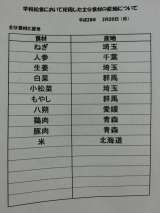 学校給食において使用した主な食材の産地について
平成28年 2月26日（金）
主な食材と産地
食材 産地
ねぎ 埼玉
人参 千葉
生姜 埼玉
白菜 群馬
小松菜 埼玉
もやし 群馬
八朔 愛媛
鶏肉 青森
豚肉 青森
米 北海道